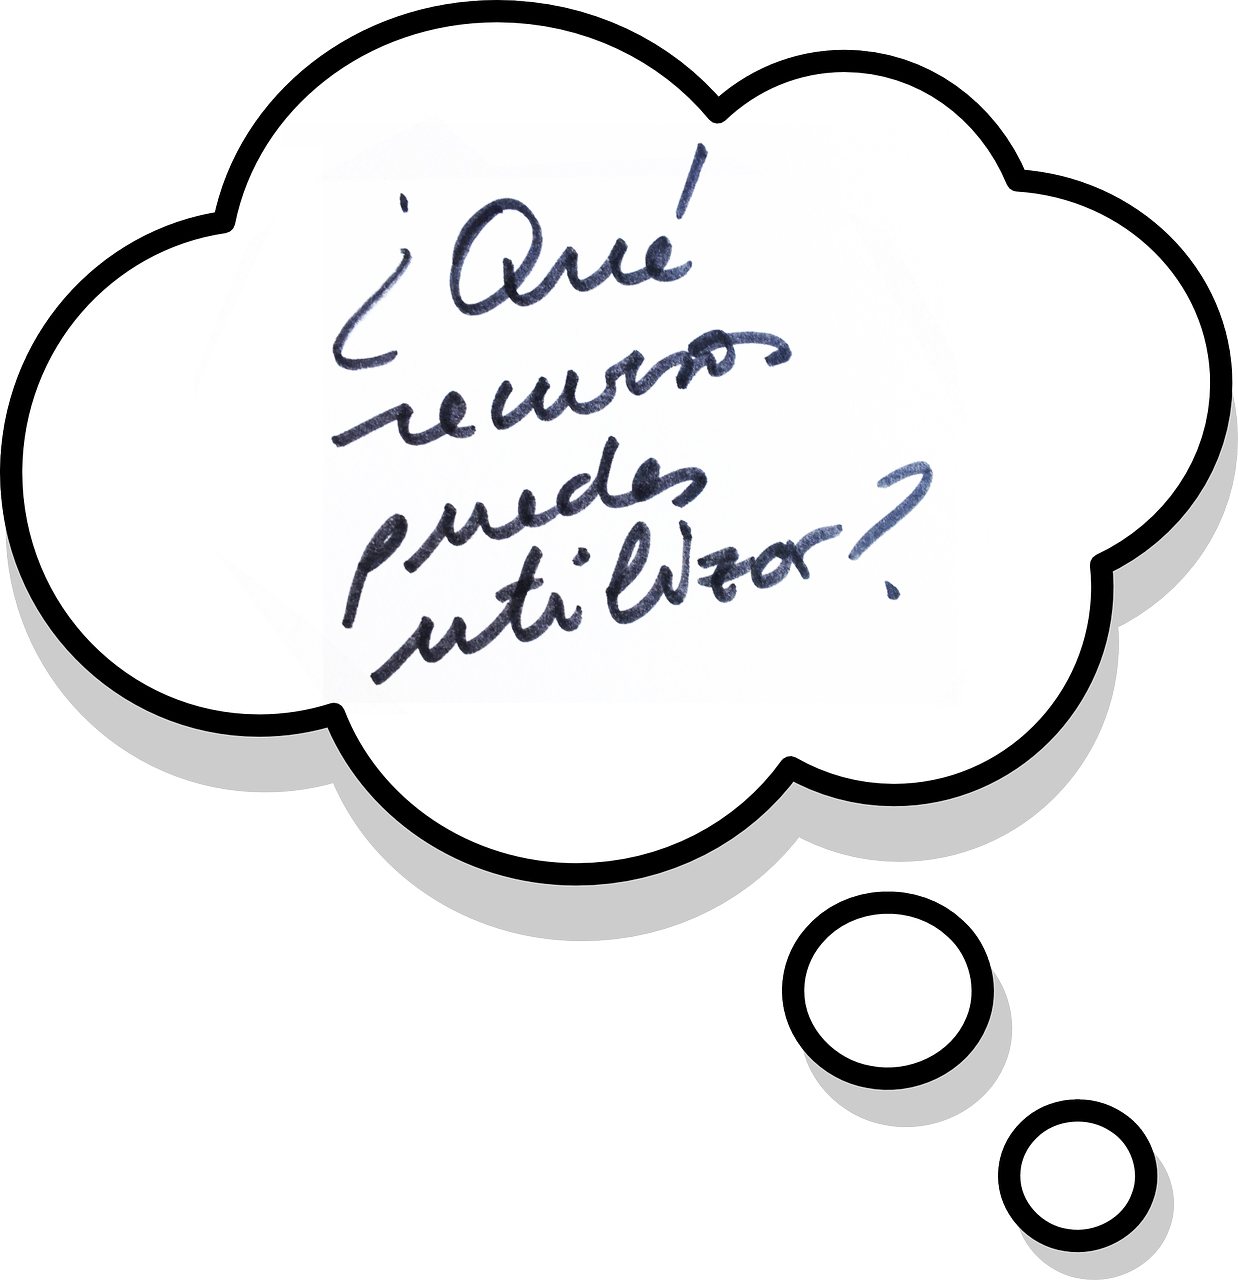 ¿Qué
recursos
puedes
utilizar?